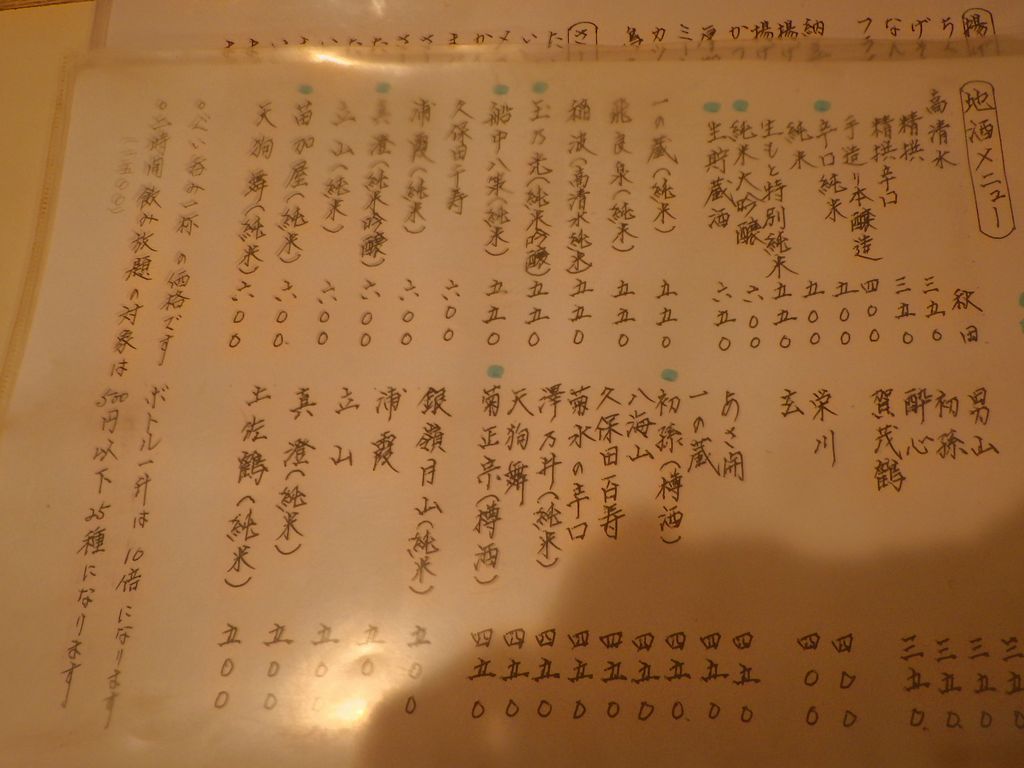 地酒メニュー
高清水 秋田
精撰 三五0
精撰辛口 三五0
手造り本醸造 四00
辛口純米 五00
純米 五00
生もと特別純米 五五0
純米大吟醸 六00
生貯蔵酒 六五0
一の蔵(純米) 五五0
飛良泉(純米) 五五0
稲波(高清水純米) 五五0
玉乃光(純米吟醸) 五五0
船中八策(純米) 五五0
久保田千寿 六00
浦霞(純米) 六00
真澄(純米吟醸) 六00
立山(純米) 六00
苗加屋(純米) 六00
天狗舞(純米) 六00
男山 三五0
初孫 三五0
酔心 三五0
賀茂鶴 三五0
栄川 四00
玄 四00
あさ開 四五0
一の蔵 四五0
初孫(樽酒) 四五0
八海山 四五0
久保田百寿 四五0
菊水の辛口 四五0
澤乃井(純米) 四五0
天狗舞 四五0
菊正宗(樽酒) 四五0
銀嶺月山(純米) 五00
浦霞 五00
立山 五00
真澄(純米) 五00
土佐鶴(純米) 五00
○ぐい呑み一杯の価格です ボトル一升は10倍になります
○二時間飲み放題の対象は500円以下25種になります